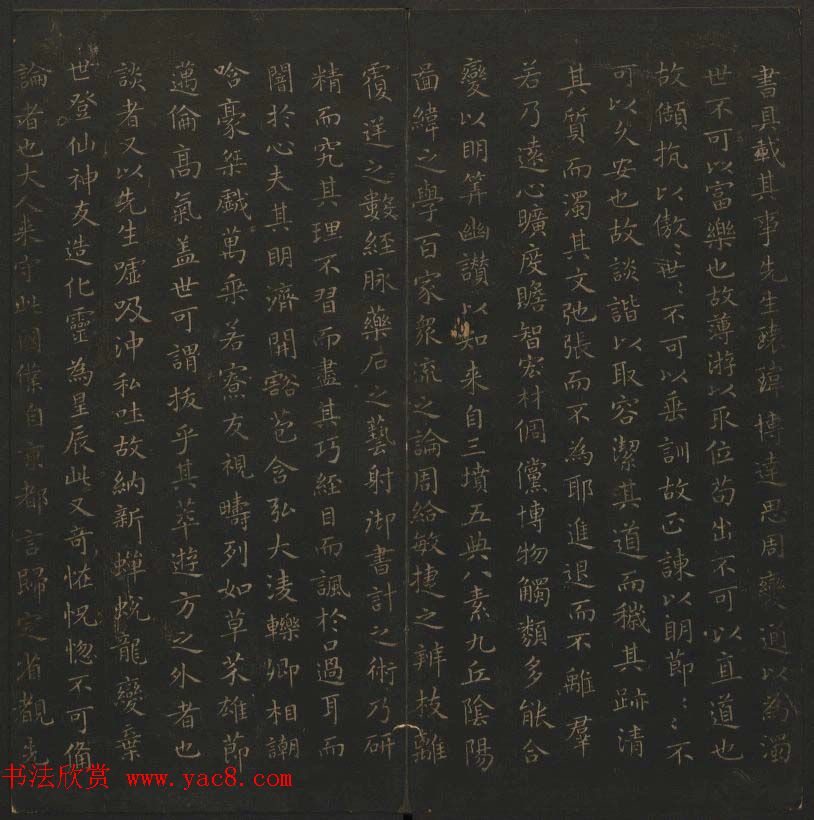 書具載其事先生瓌瑋博達思周變通以為濁
世不可以富樂也故薄游以取位苟出不可以直道也
故頡抗以傲〻世〻不可以垂訓故正諫以明節〻〻不
可以久安也故談諧以取容潔其道而穢其跡清
其質而濁其文弛張而不為耶進退而不離羣
若乃遠心曠度贍智宏材倜儻博物觸類多能合
變以明筭幽讃以知来自三墳五典八素九丘陰陽
啚緯之學百家衆流之論周給敏捷之辨枝離
覆逆之數經脉藥石之藝射御書計之術乃研
精而究其理不習而盡其巧經目而諷於口過耳而
闇於心夫其明濟開豁苞含弘大淩轢卿相謿
哈豪桀戲萬乗若寮友視疇列如草芥雄節
邁倫髙氣盖世可謂拔乎其萃遊方之外者也
談者又以先生噓吸沖私吐故納新蟬蛻龍變棄
世登仙神友造化靈為星辰此又奇恠怳惚不可備
論者也大人来守此國僕自京都言歸定省覩先
书法欣赏 www.yac8.com